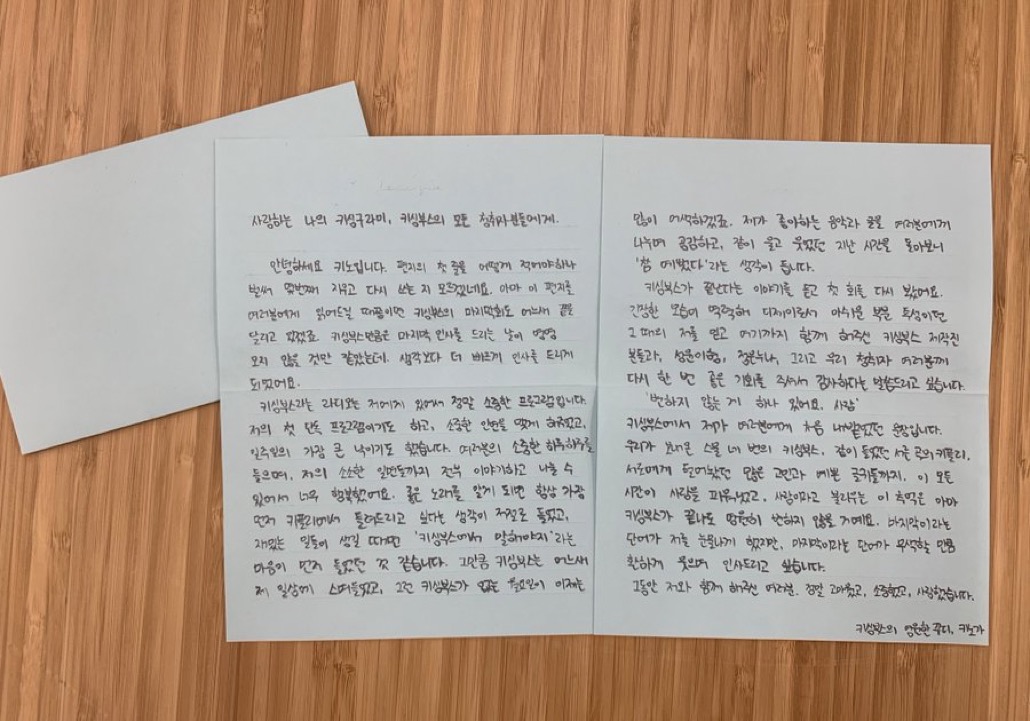 사랑하는 나의 키싱구라미, 키싱부스의 모든 청취자분들에게.
안녕하세요 키노입니다. 편지의 첫 줄을 어떻게 적어야하나
벌써 몇번째 지우고 다시 쓰는 지 모르겠네요. 아마 이 편지를
여러분에게 읽어드릴 때쯤이면 키싱부스의 마지막회도 어느새 끝을
달리고 있겠죠. 키싱부스만큼은 마지막 인사를 드리는 날이 영영
오지 않을 것만 같았는데. 생각보다 더 빠르게 인사를 드리게
되었어요.
키싱부스라는 라디오는 저에게 있어서 정말 소중한 프로그램입니다.
저의 첫 단독 프로그램이기도 하고, 소중한 인연을 맺게 해주었고,
일주일의 가장 큰 낙이기도 했습니다. 여러분의 소중한 하루하루를
들으며, 저의 소소한 일면도까지 전부 이야기하고 나눌 수
있어서 너무 행복했어요. 좋은 노래를 알게 되면 항상 가장
먼저 키플리에서 들려드리고 싶다는 생각이 저절로 들었고,
재밌는 일들이 생길 때면 '키싱부스에서 말해야지'라는
마음이 먼저 들었던 것 같습니다. 그만큼 키싱부스는 어느새
제 일상에 스며들었고, 그런 키싱부스가 없는 월요일이 이제는
많이 어색하겠죠. 제가 좋아하는 음악과 글을 여러분에게
나누며 공감하고, 같이 울고 웃었던 지난 시간을 돌아보니
'참 예뻤다'라는 생각이 듭니다.
키싱부스가 끝난다는 이야기를 듣고 첫 회를 다시 봤어요.
긴장한 모습이 역력해 디제이로서 아쉬운 부분 투성이던
그 때의 저를 믿고 여기까지 함께 해주신 키싱부스 제작진
분들과, 성윤이형, 정분누나, 그리고 우리 청취자 여러분께
다시 한 번 좋은 기회를 주셔서 감사하다는 말씀드리고 싶습니다.
'변하지 않는 게 하나 있어요. 사랑'
키싱부스에서 제가 여러분에게 처음 내뱉었던 문장입니다.
우리가 보내온 스물 네 번의 키싱부스, 같이 들었던 서른 곡의 키플리,
서로에게 털어놨던 많은 고민과 예쁜 글귀들까지, 이 모든
시간이 사랑을 피워냈고, 사랑이라고 불리우는 이 추억은 아마
키싱부스가 끝나도 영원히 변하지 않을 거예요. 마지막이라는
단어가 저를 눈물나게 했지만, 마지막이라는 단어가 무색할 만큼
환하게 웃으며 인사드리고 싶습니다.
그동안 저와 함께 해주신 여러분. 정말 고마웠고, 소중했고, 사랑했습니다.
키싱부스의 영원한 쭈디, 키노가